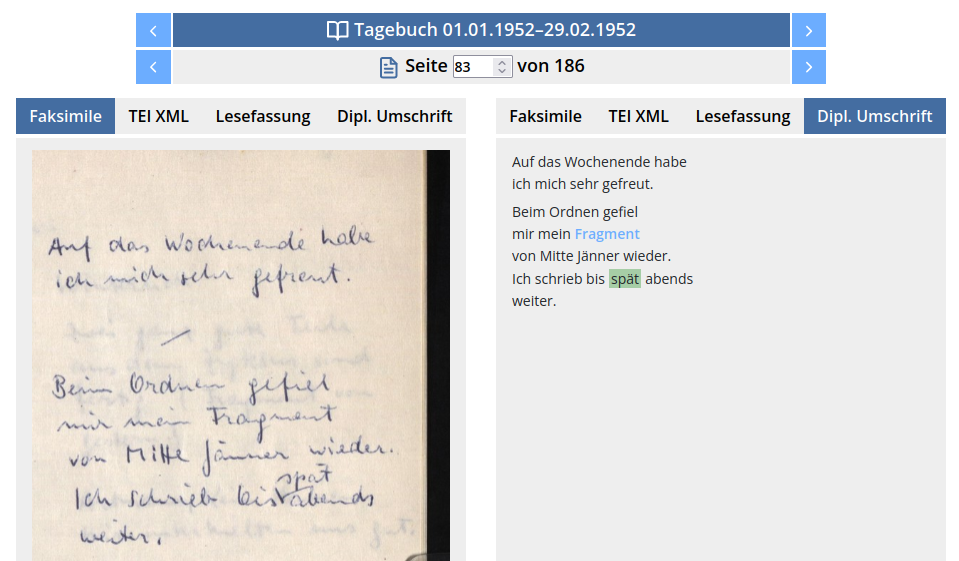 Tagebuch 01.01.1952–29.02.1952
Seite 83 von 186
Faksimile TEI XML Lesefassung Dipl. Umschrift
Auf das Wochenende habe
ich mich sehr gefreut.
Beim Ordnen gefiel
mir mein Fragment
von Mitte Jänner wieder.
spät
Ich schrieb bis abends
weiter.
Faksimile TEI XML Lesefassung Dipl. Umschrift
Auf das Wochenende habe
ich mich sehr gefreut.
Beim Ordnen gefiel
mir mein Fragment
von Mitte Jänner wieder.
Ich schrieb bis spät abends
weiter.